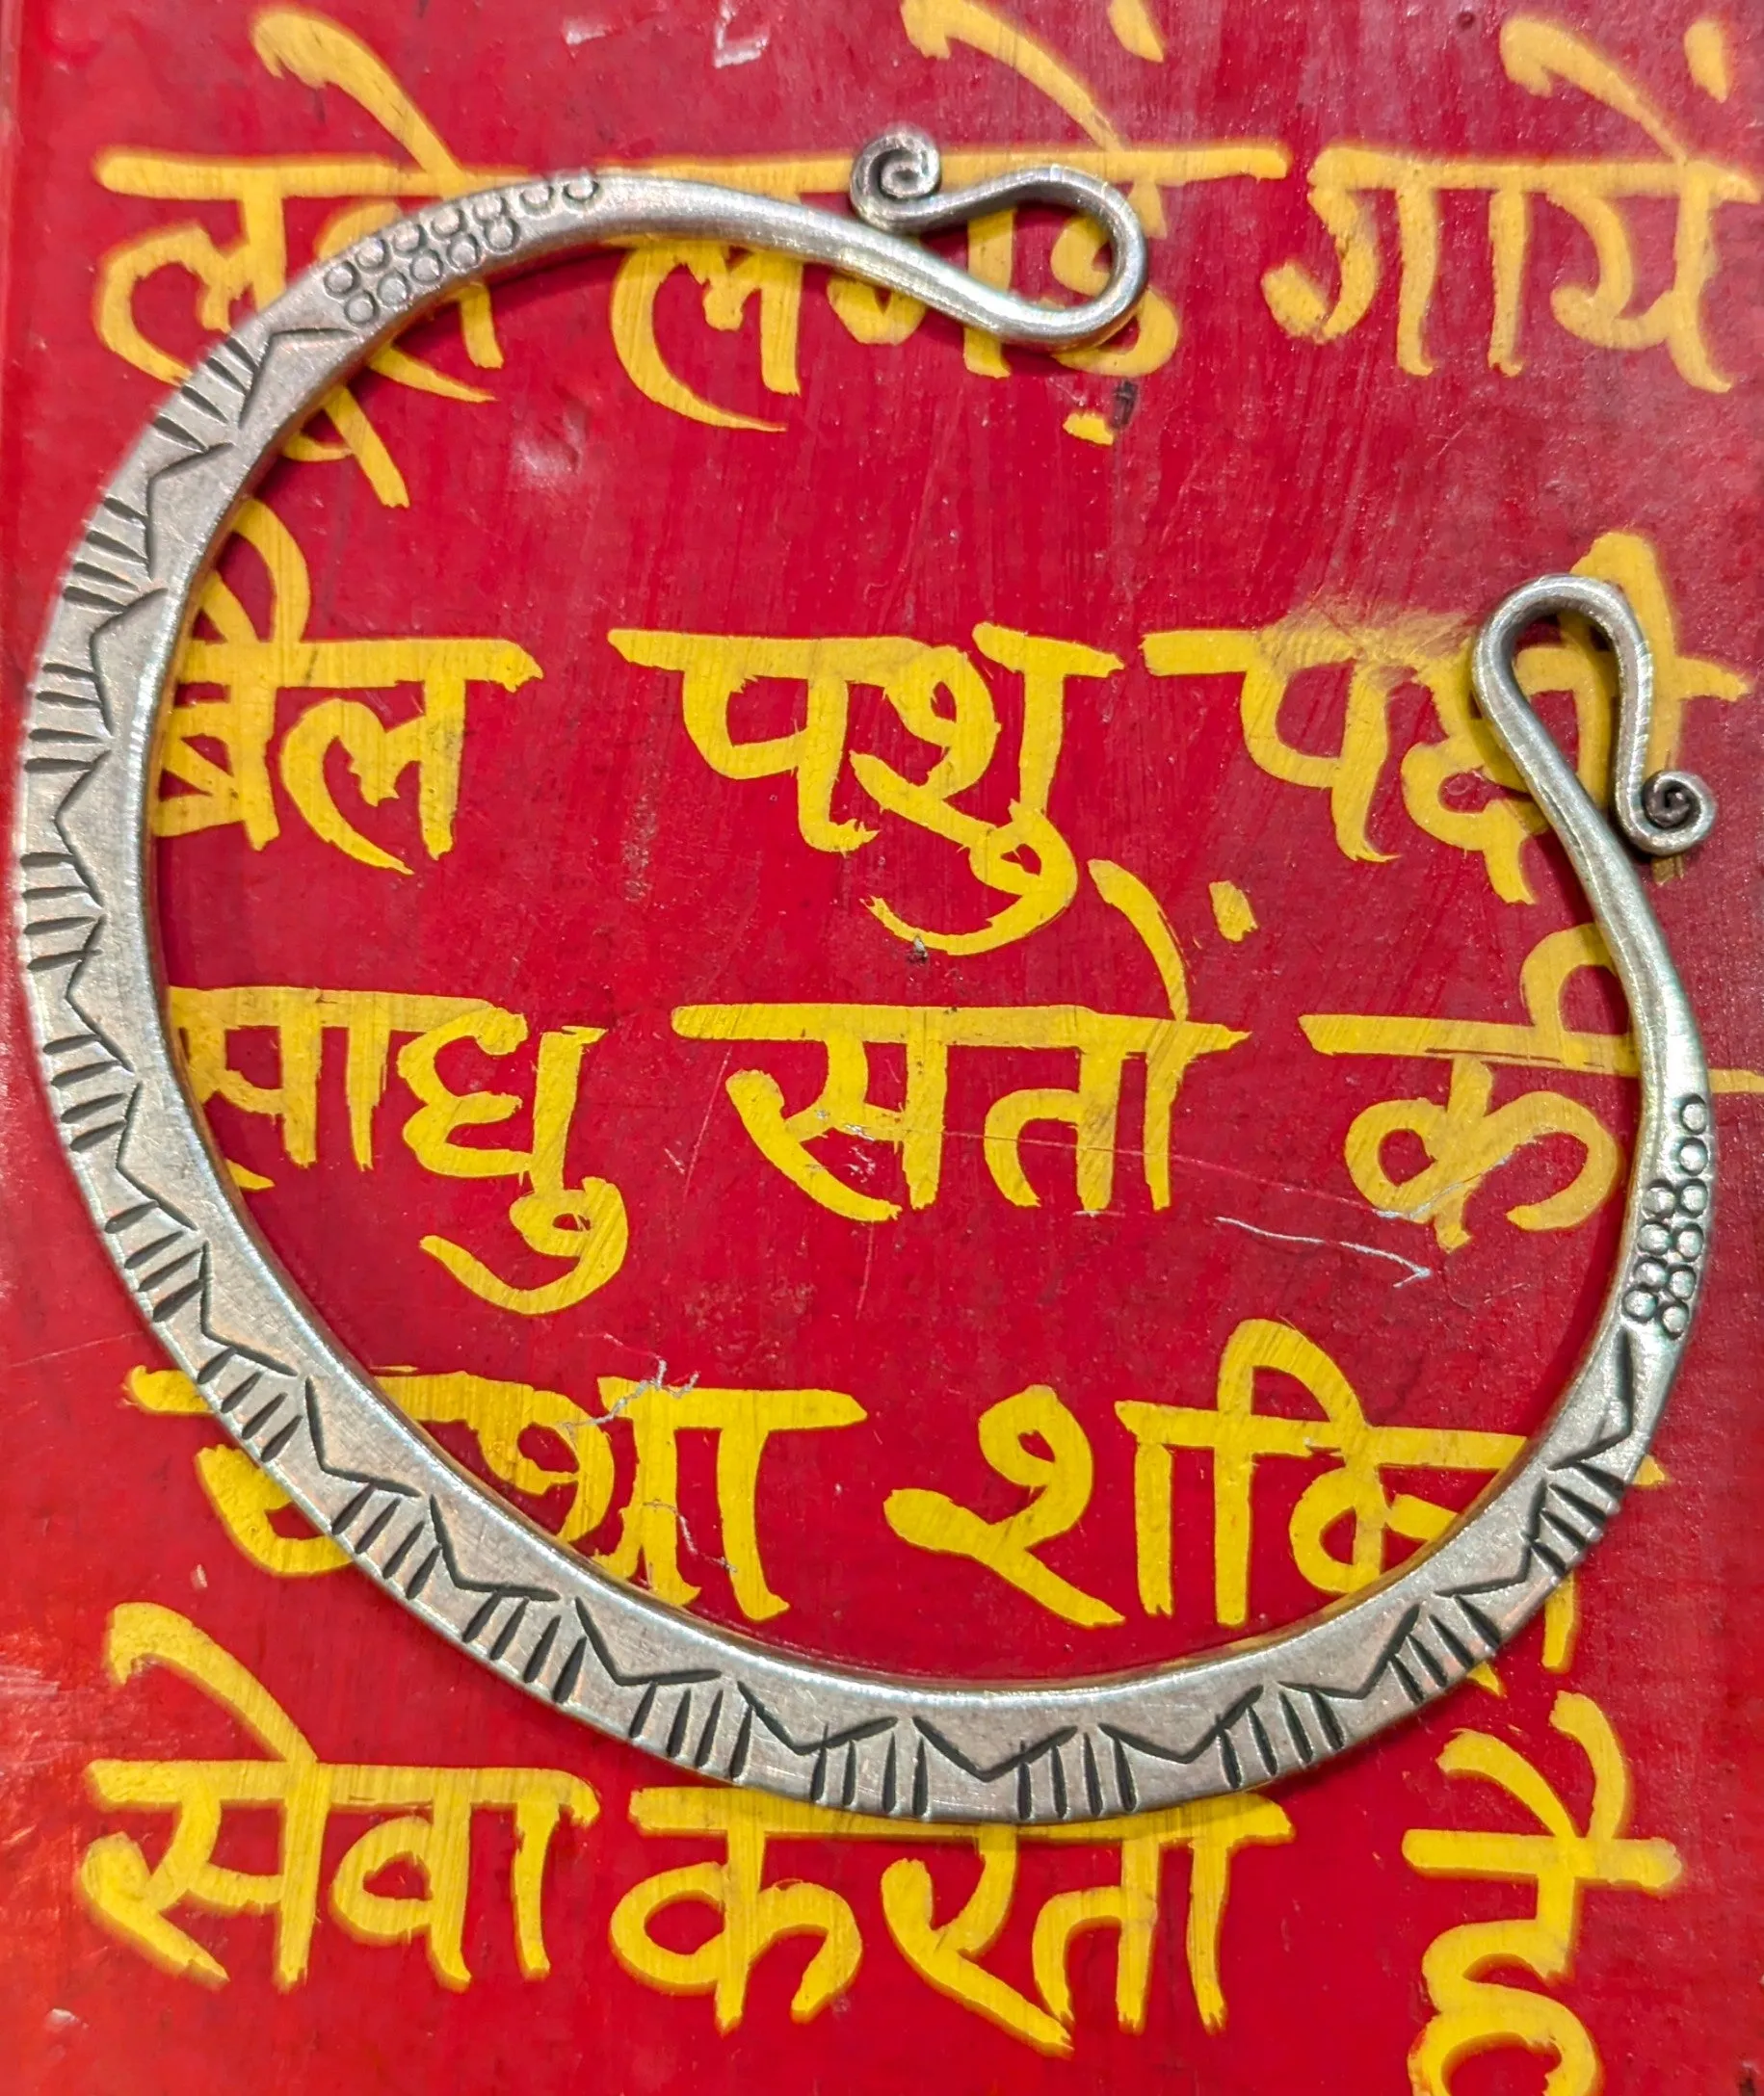 लूले लगड़ें गायें
बैल पशु पक्षी
साधु सतों की
यथा २ शक्ति
सेवा करता है